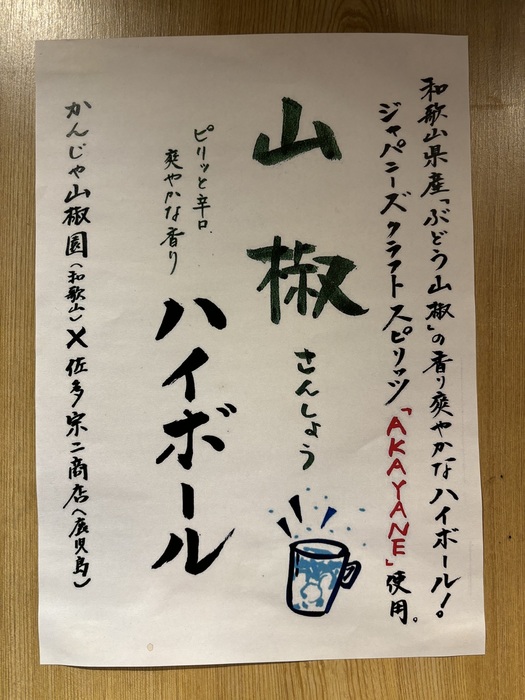 和歌山県産「ぶどう山椒」の香り爽やかなハイボール!。
ジャパニーズクラフトスピリッツ「AKAYANE」使用。
山椒
さんしょう
ハイボール
ピリッと辛口
爽やかな香り
かんじゃ山椒園(和歌山)×佐多宗二商店(鹿児島)